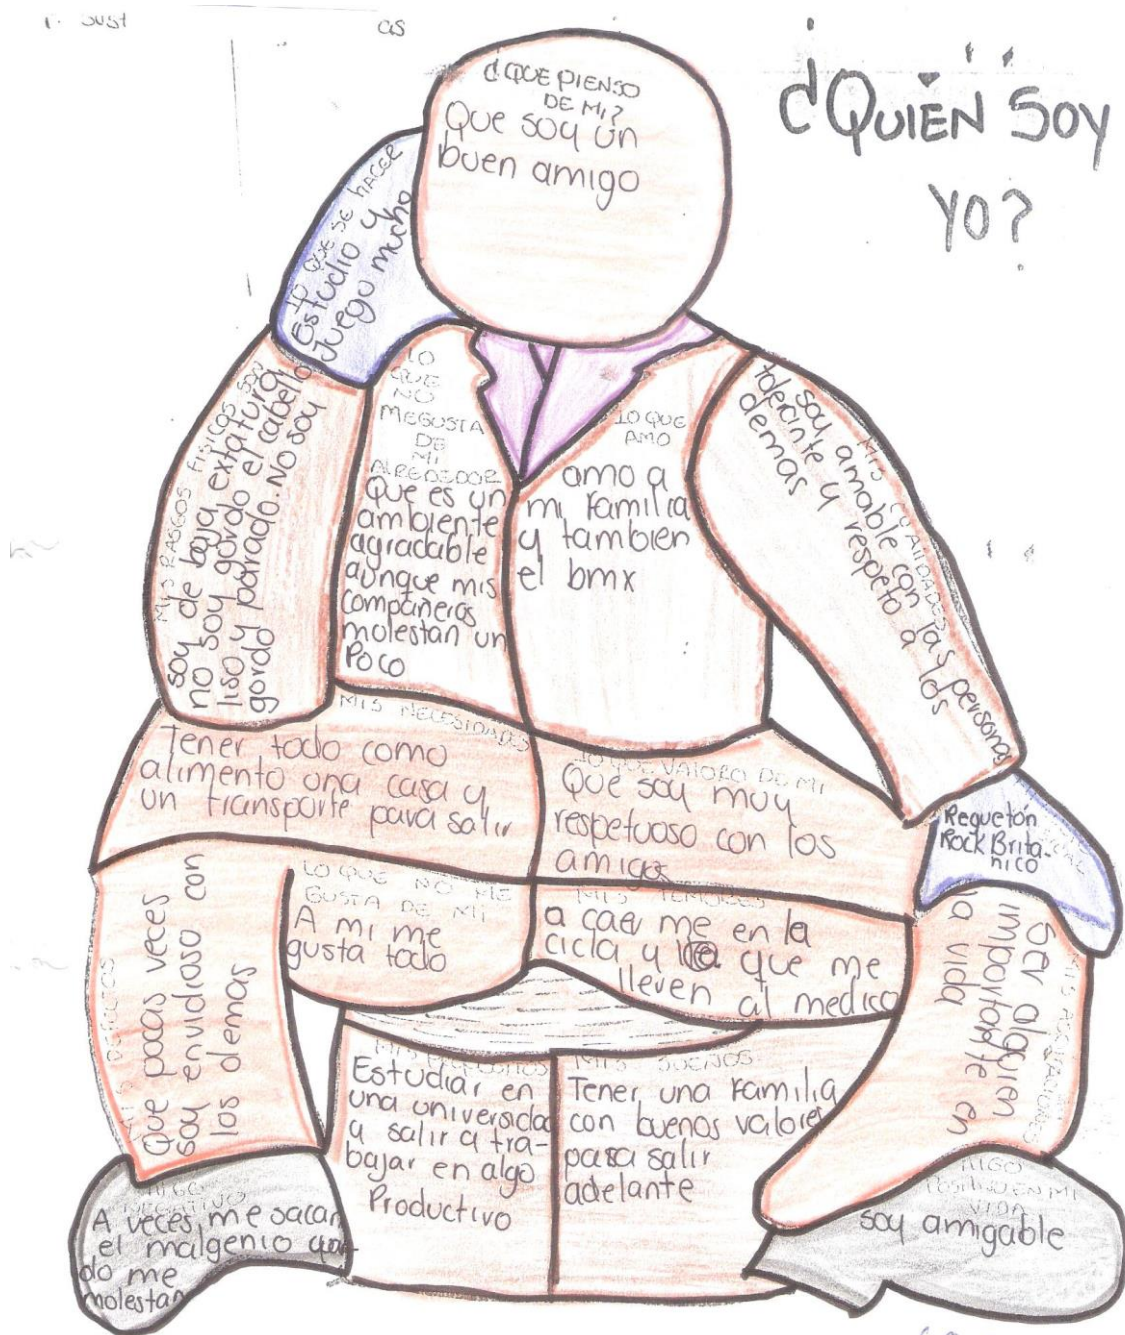 ¿QUIÉN SOY
YO?
¿QUE PIENSO
DE MI?
Que soy un
buen amigo
LO QUE SE HACER
Estudio y
Juego mucho
MIS RASGOS FISICOS SON
soy de baja extatura
no soy gordo el cabello
liso y parado. No soy
gordo
LO
QUE
NO
MEGUSTA
DE
MI
ALREDEDOR
Que es un
ambiente
agradable
aunque mis
compañeros
molestan un
Poco
LO QUE
AMO
amo a
mi familia
y tambien
el bmx
MIS CUALIDADES
soy amable con las personas
tolerante y respeto a los
demas
MIS NECESIDADES
Tener todo como
alimento una casa y
un transporte para salir
LO QUE VALORO DE MI
Que soy muy
respetuoso con los
amigos
Reguetón
Rock Brita-
nico
MIS DEFECTOS
Que pocas veces
soy envidioso con
los demas
LO QUE NO ME
GUSTA DE MI
A mi me
gusta todo
MIS TEMORES
a caer me en la
cicla y que me
lleven al medico
Ser alguien
importante en
la vida
Estudiar en
una universidad
y salir a tra-
bajar en algo
Productivo
MIS SUEÑOS
Tener una familia
con buenos valores
para salir
adelante
ALGO
NEGATIVO
A veces me sacan
el malgenio quan-
do me
molestan
ALGO
POSITIVO EN MI
VIDA
soy amigable